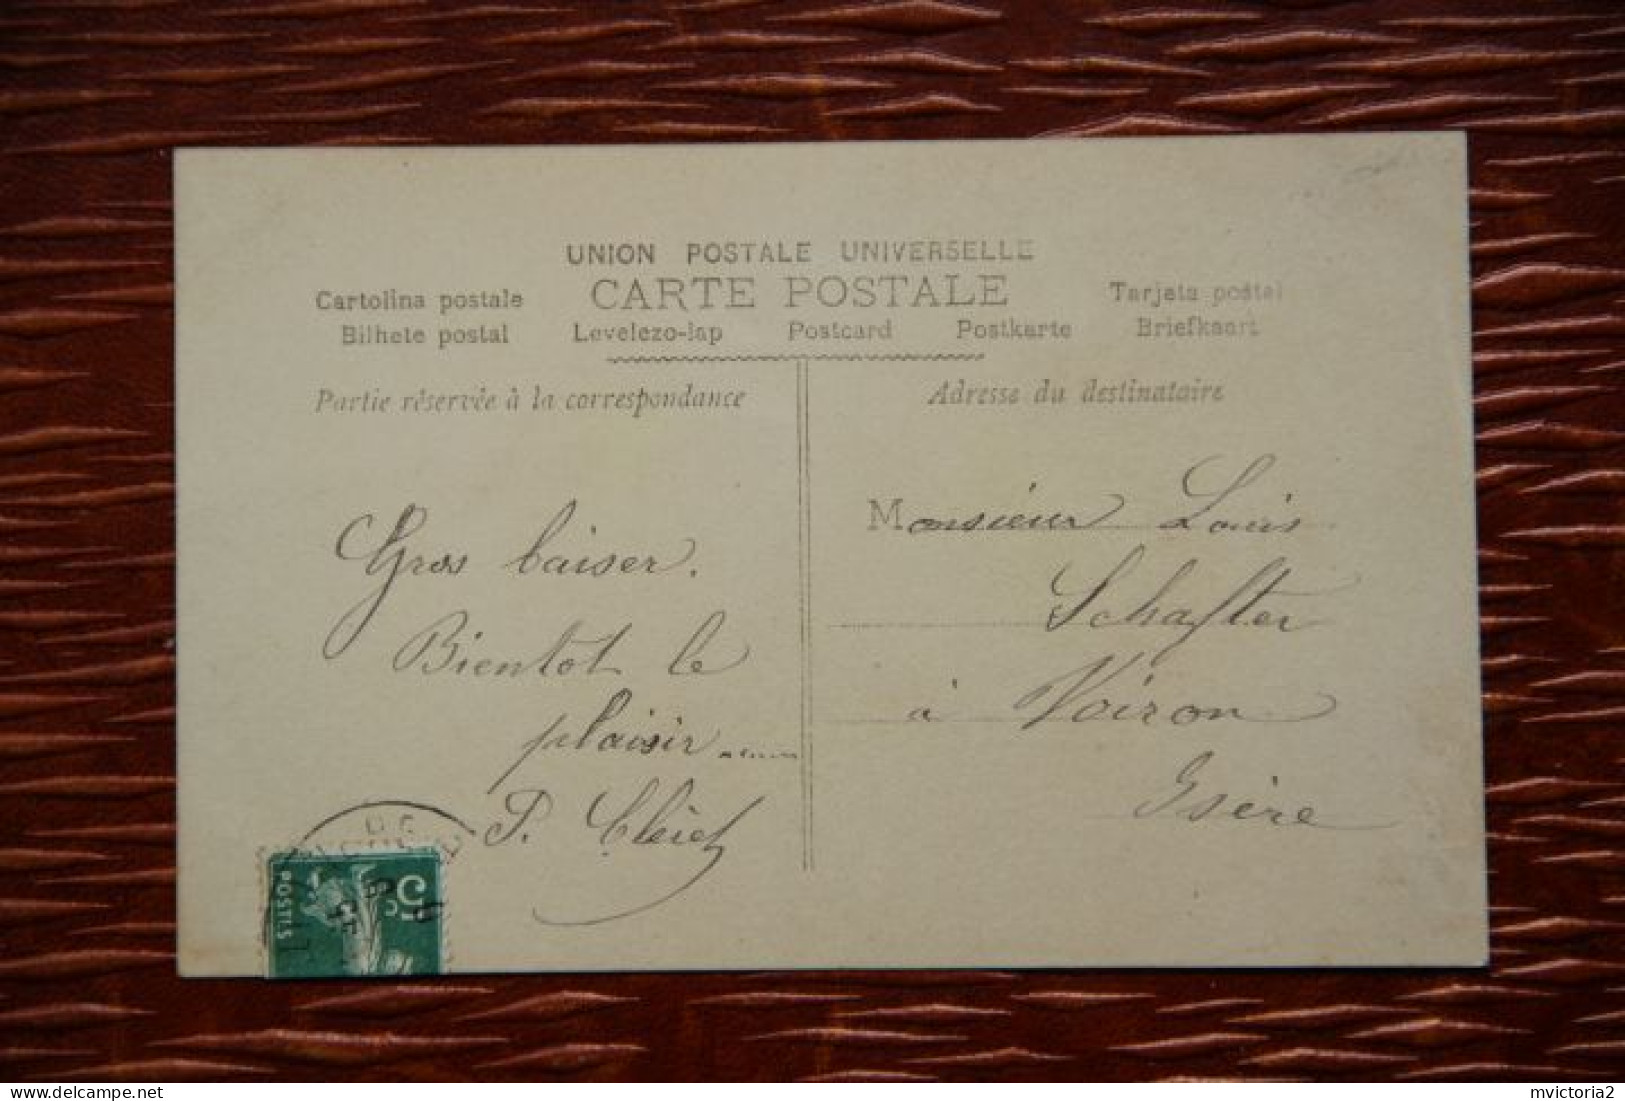 UNION POSTALE UNIVERSELLE
CARTE POSTALE
Cartolina postale
Tarjeta postal
Bilhete postal Levelezo-lap Postcard Postkarte Briefkaart
Partie réservée à la correspondance
Gros baiser.
Bientot le
plaisir ........
P.
Adresse du destinataire
Monsieur Louis
Schafter
à Voiron
Isère
5c
POSTES
mvictoria2